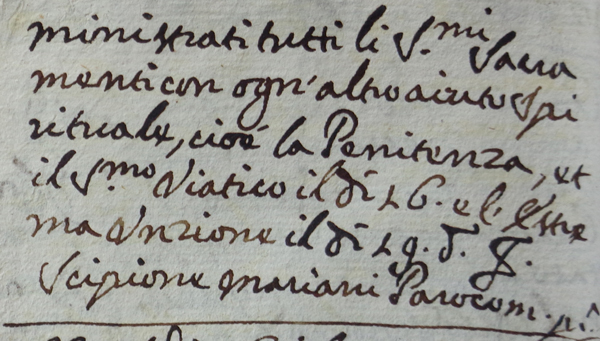 ministrati tutti li S.mi Sacra
menti con ogn' altro aiuto Spi
rituale, cioè la Penitenza, et
il S.mo Viatico il dì 16. e l'Estre
ma Unzione il dì 19. d.
Scipione Mariani Paroco m. pr.